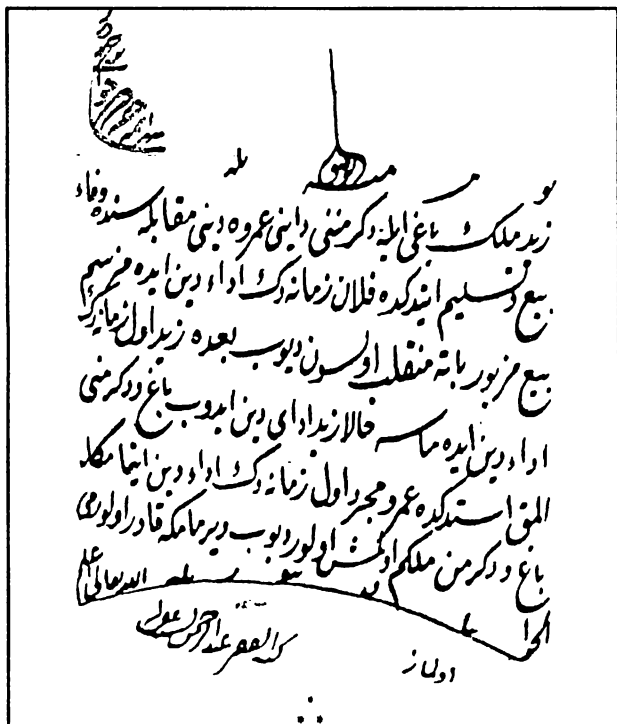 بو مسئله
زید ملك باغی ایله دكرمننی داینی عمروه دینی مقابله سنده وفاء
بیع و تسلیم ایتدكده فلان زمانه دك اداء دین ایده مزسم
بیع مزبور باته منقلب اولسون دیوب بعده زید اول زمانه دك
اداء دین ایده ماسه حالا زید ادای دین ایدوب باغ و دكرمنی
المق استدكده عمرو مجرد اول زمانه دك اداء دین ایتمامكله
باغ و دكرمن ملكم اولمش اولور دیوب ویرمامكه قادر اولورمی
الجواب الله تعالی اعلم
اولماز
كتبه الفقیر